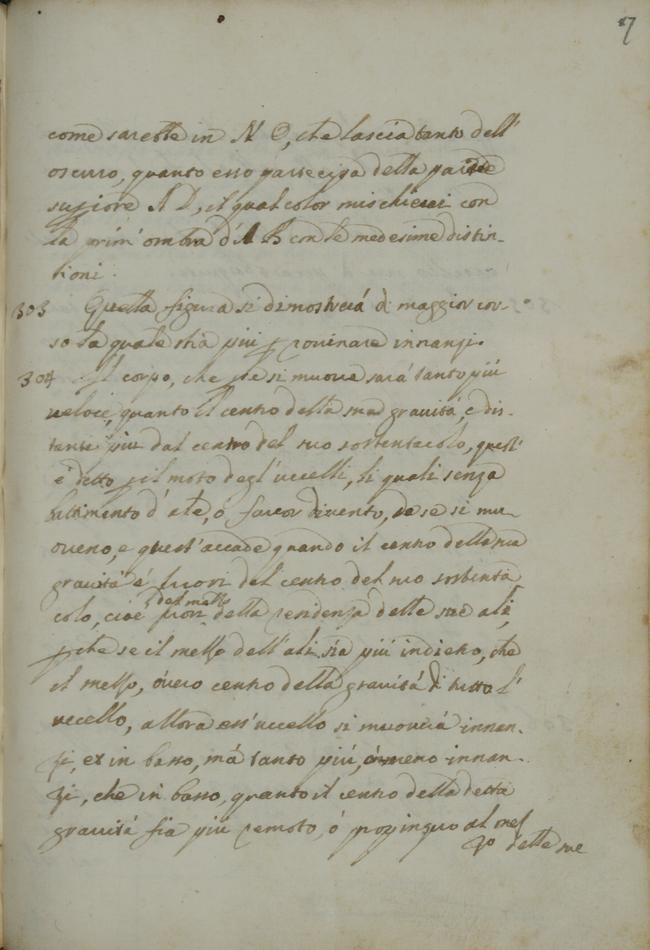 7
come sarebbe in N O, che lascia tanto dell'
oscuro, quanto esso partecipa della parte
supiore A D, il qual color mischierai con
la prim'ombra d'A B con le medesime distin-
tioni.
303 Quella figura si dimostrerà di maggior cor-
so la quale stia più p rovinare innanzi.
304 Il corpo, che p se si muove sarà tanto più
veloce, quanto il centro della sua gravità, è dis-
tante più dal centro del suo sostentacolo, quest'
è detto p il moto degl'uccelli, li quali senza
battimento d'ale, o favor di vento, da se si mu-
oveno, e quest'accade quando il centro della sua
gravità è fuori del centro del suo sostenta
colo, cioè fuori del mezzo della residenza delle sue ali,
p che se il mezzo dell'ali sia più indietro, che
il mezzo, òvero centro della gravità di tutto l'
uccello, allora ess'uccello si muoverà innan-
zi, et in basso, mà tanto più, ò meno innan-
zi, che in basso, quanto il centro della detta
gravità fia più remoto, ò propinquo al mez
zo delle sue